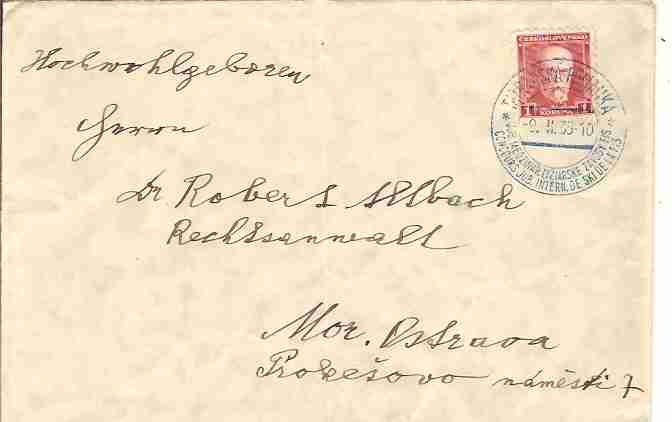 Hochwohlgeboren
Herrn
Dr Robert Allbach
Rechtsanwalt
Mor. Ostrava
Prokešovo náměstí 7
ČESKOSLOVENSKO
1 KORUNA 1
CONCOURS JUB. INTERN. DE SKI DE